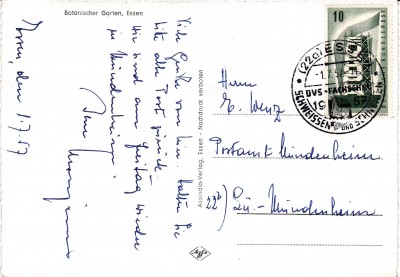 Botanischer Garten, Essen
Essen, den 1.7.57
Viele Grüße von hier. Halten Sie
bitte alle Post zurück.
Wir sind am Freitag wieder
in Mündenheim.
Assindia-Verlag, Essen - Nachdruck verboten
Agfa
10
(22a) ESSEN
-1.7.57
DVS-FACHSCHAU
19 57
SCHWEISSEN UND SCHNEIDEN
Herrn
E. Wenz
Postamt Mündenheim
22b) Lu.-Mündenheim